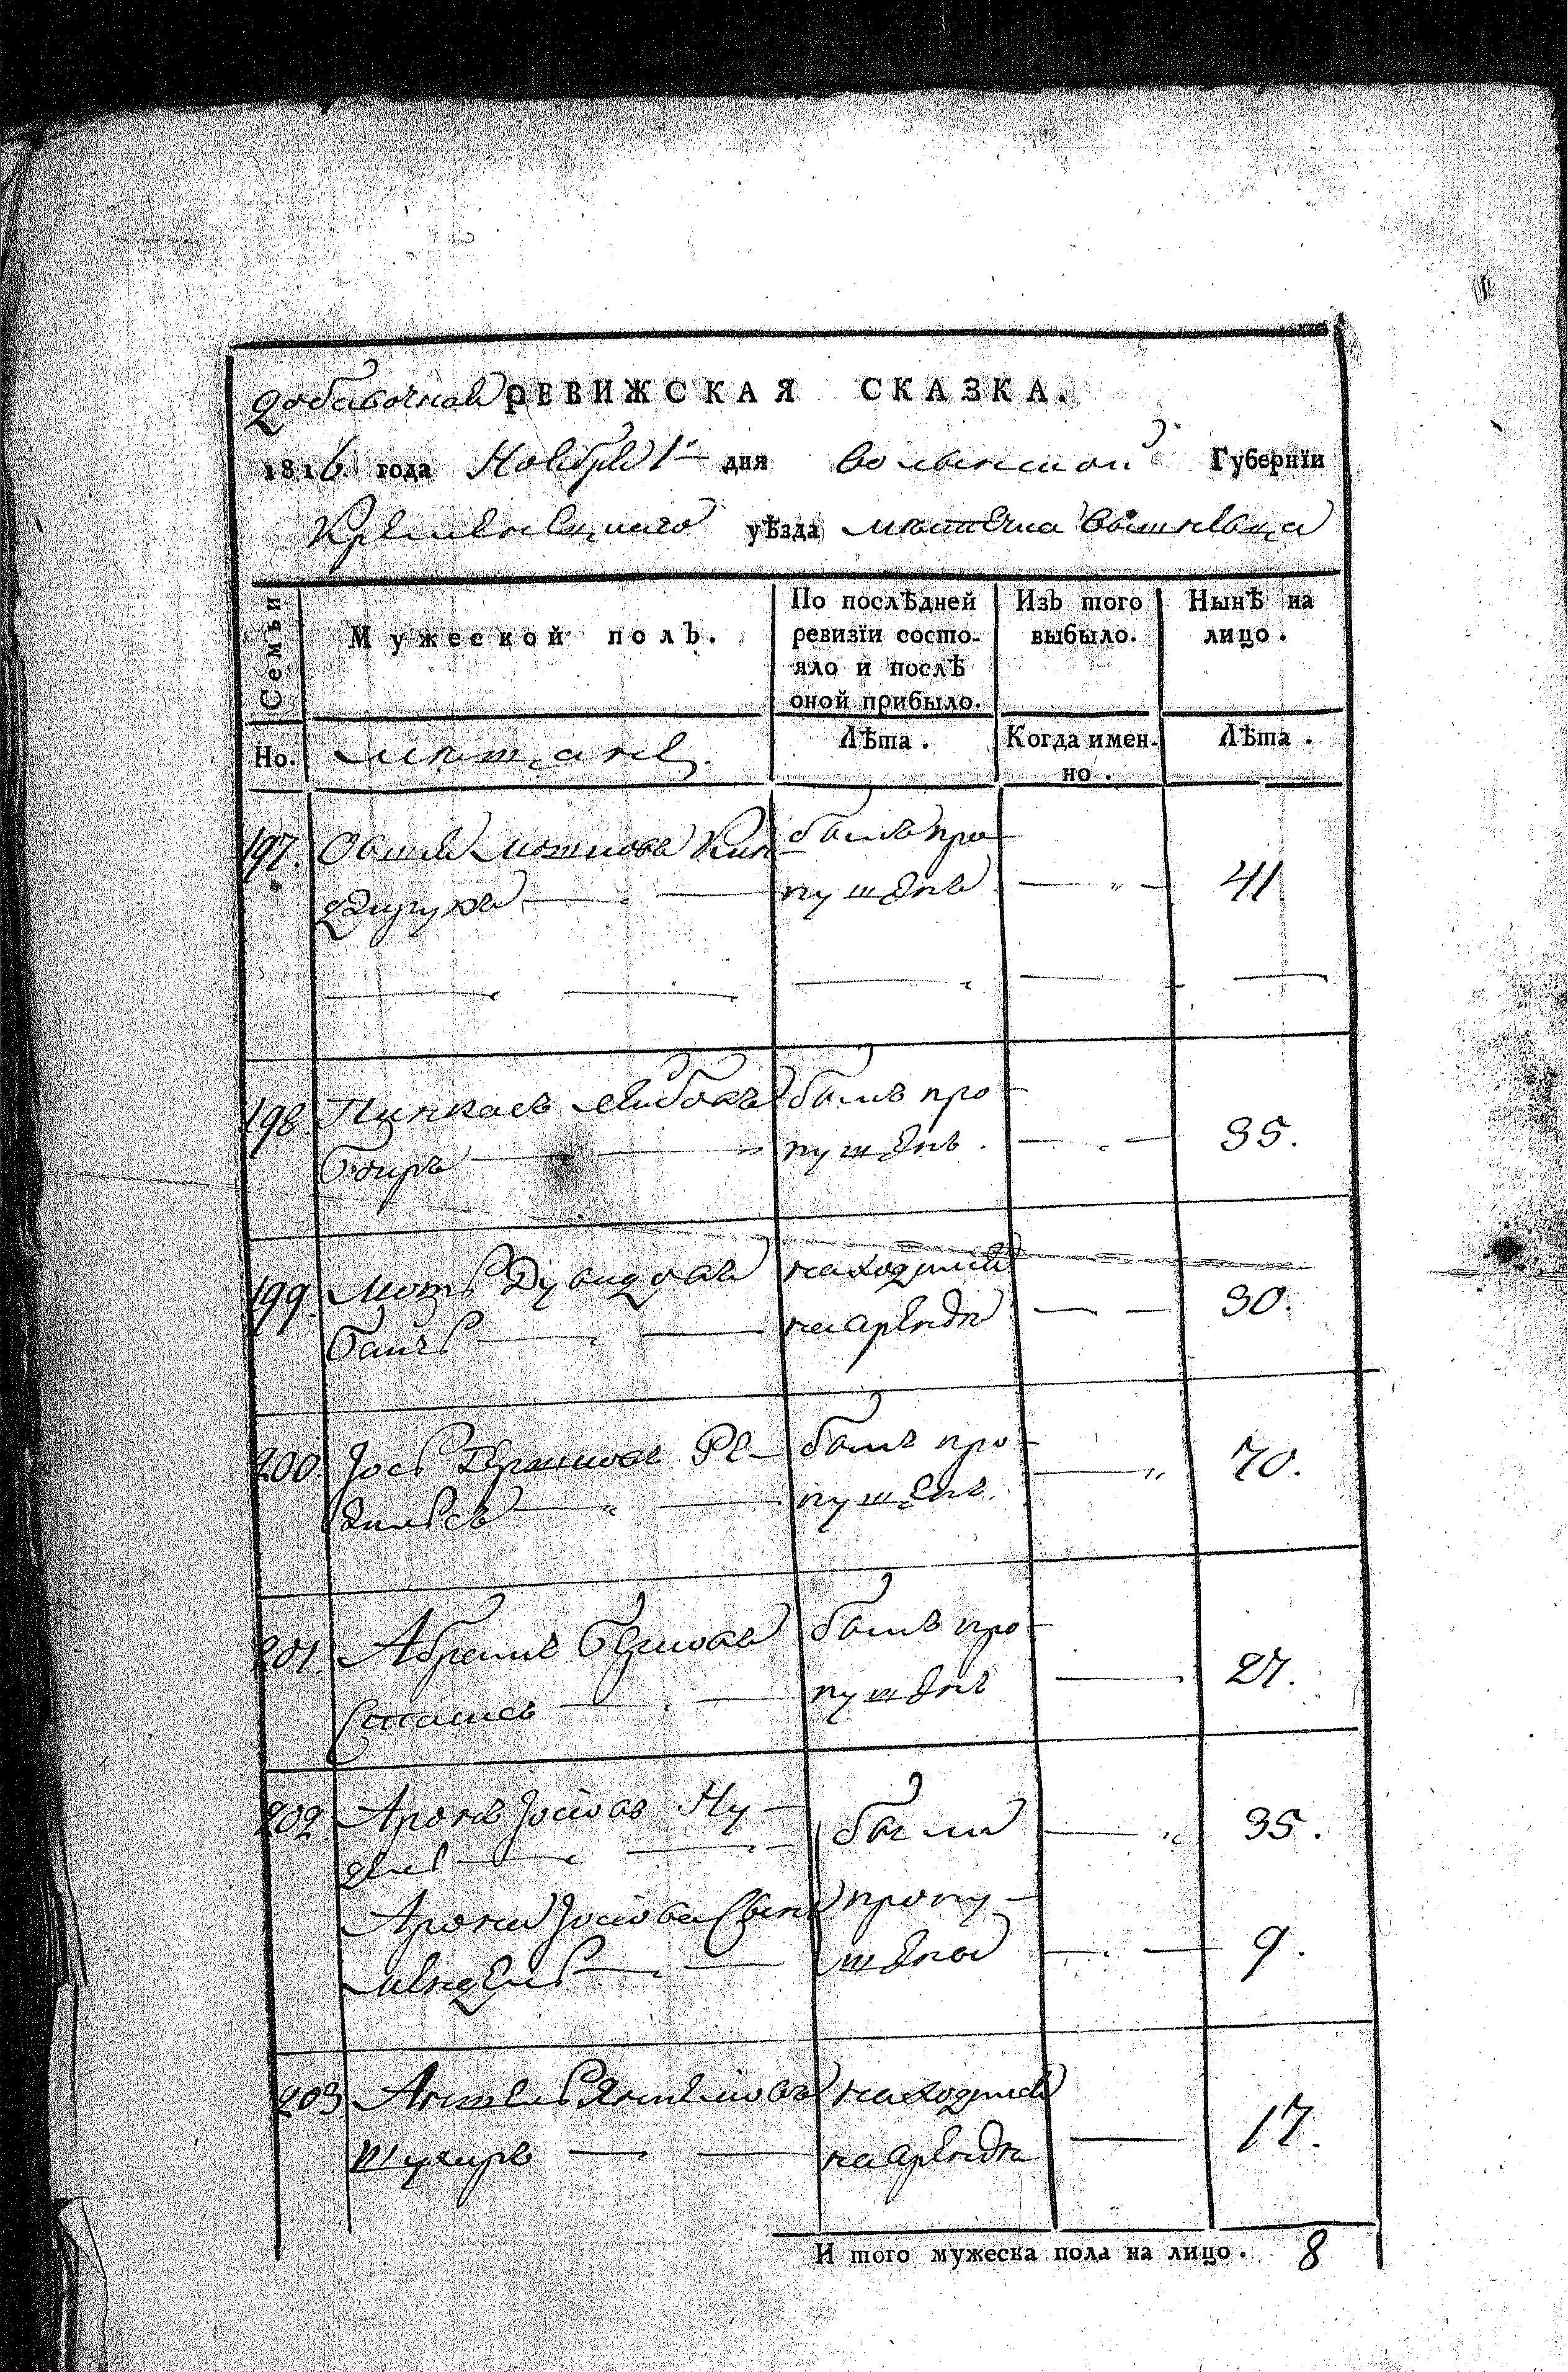 добавочная РЕВИЖСКАЯ СКАЗКА.
1816 года Ноября 1го дня Волынской Губернїи
Кременецкаго уѣзда местечка Вышневца
Семьи
Мужеской полъ.
По послѣдней ревизїи состо-
яло и послѣ
оной прибыло.
Изъ того
выбыло.
Нынѣ на
лицо.
Но.
мещане
Лѣта.
Когда имен-
но.
Лѣта.
197. Овшия Мошков Кин- былъ про- 41
пущенъ
198 Пинкасъ Лейбовъ былъ про- 35.
пущенъ
199 Мошь Дувидовъ находился 30.
на аренде
200 Іось Гершковъ Ре- былъ про- 70.
пущенъ
201. Абрамъ былъ про- 27.
пущенъ
202 Аронъ Іосіовъ Ну- были 35.
Арона Іосіова сынъ пропу- 9.
Мендель щены
203 Аншель Аншелиовъ находился 17.
на аренде
И того мужеска пола на лицо. 8